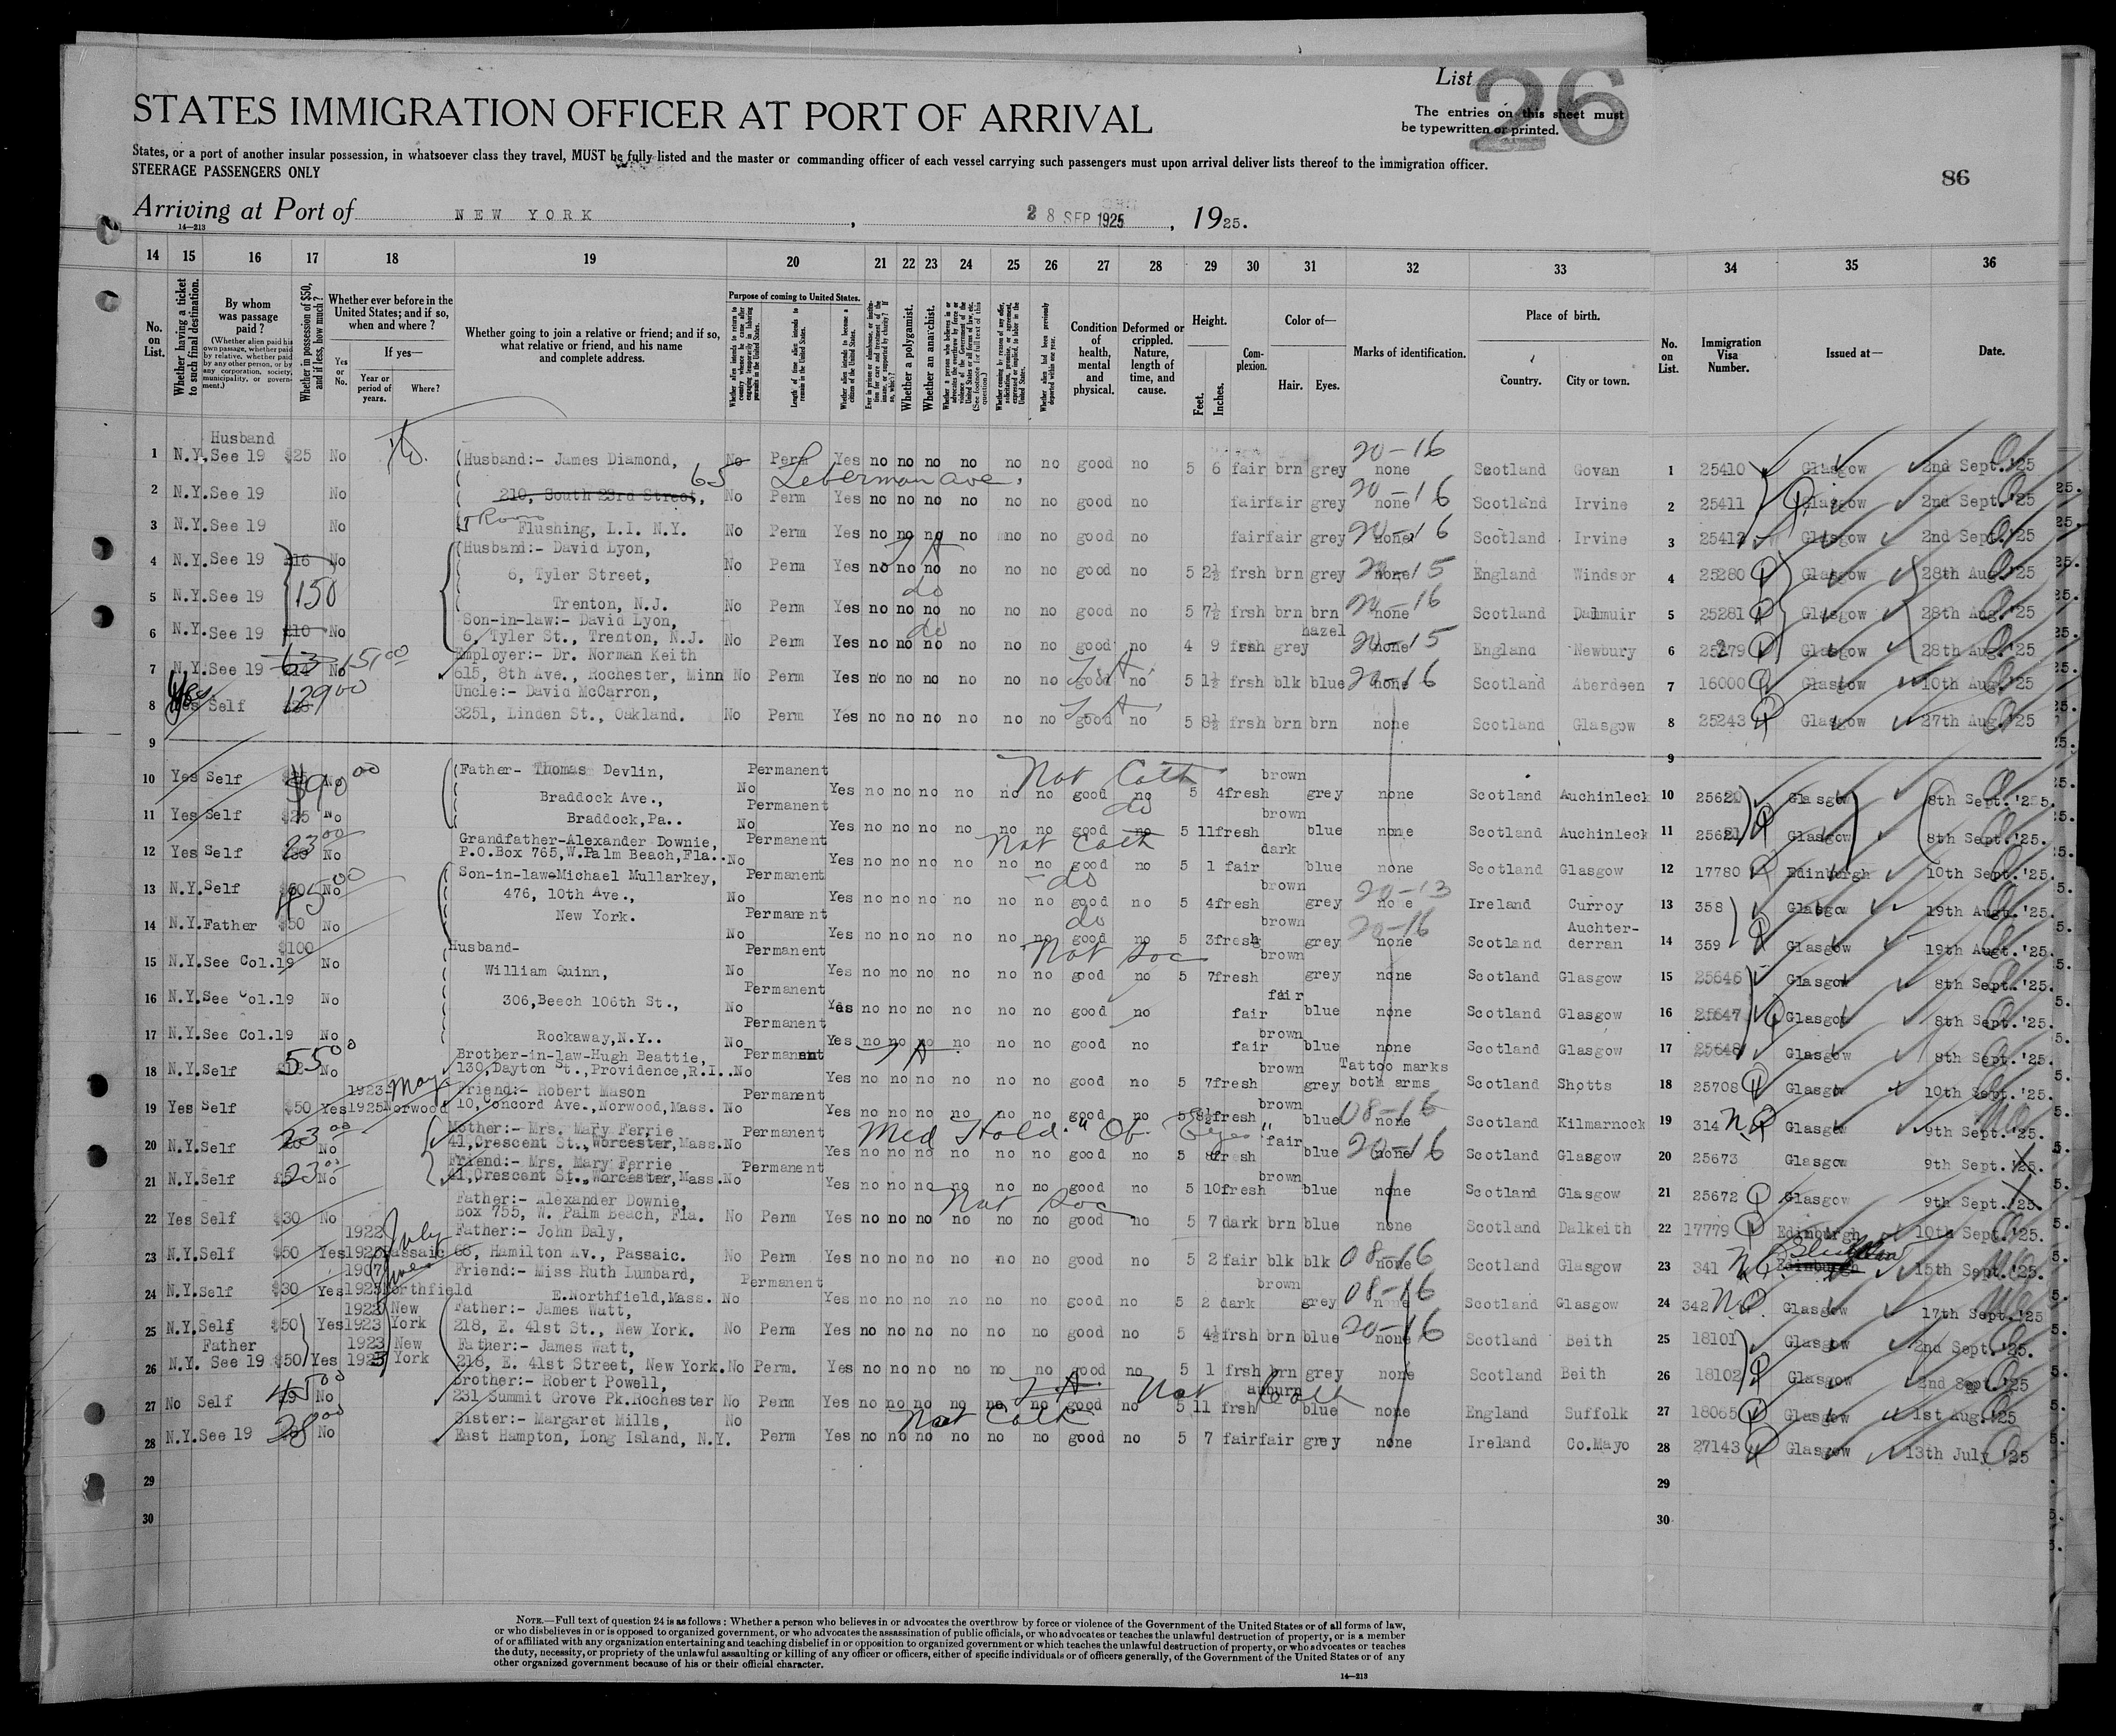 List 26
STATES IMMIGRATION OFFICER AT PORT OF ARRIVAL
The entries on this sheet must
be typewritten or printed.
States, or a port of another insular possession, in whatsoever class they travel, MUST be fully listed and the master or commanding officer of each vessel carrying such passengers must upon arrival deliver lists thereof to the immigration officer.
STEERAGE PASSENGERS ONLY
86
Arriving at Port of NEW YORK, 28 SEP 1925, 1925.
14—213
14 15 16 17 18 19 20 21 22 23 24 25 26 27 28 29 30 31 32 33 34 35 36
No. on List.
Whether having a ticket to such final destination.
By whom was passage paid?
(Whether alien paid his own passage, whether paid by relative, whether paid by any other person, or by any corporation, society, municipality, or government.)
Whether in possession of $50, and if less, how much?
Whether ever before in the United States; and if so, when and where?
Yes or No.
If yes—
Year or period of years.
Where?
Whether going to join a relative or friend; and if so, what relative or friend, and his name and complete address.
Purpose of coming to United States.
Length of time alien intends to remain in the United States.
Whether alien intends to become a citizen of the United States.
Whether a polygamist.
Whether an anarchist.
Condition of health, mental and physical.
Deformed or crippled. Nature, length of time, and cause.
Height.
Feet. Inches.
Complexion.
Color of—
Hair. Eyes.
Marks of identification.
Place of birth.
Country. City or town.
No. on List.
Immigration Visa Number.
Issued at—
Date.
1 N.Y. Husband See 19 $25 No (Husband:- James Diamond, No Perm Yes no no no no no no good no 5 6 fair brn grey 20-16 none Scotland Govan 1 25410 Glasgow 2nd Sept. '25
65 Leberman ave.
2 N.Y. See 19 No 210, South 23rd Street, No Perm Yes no no no no no no good no fair fair grey 20-16 none Scotland Irvine 2 25411 Glasgow 2nd Sept. '25
3 N.Y. See 19 No Flushing, L.I. N.Y. No Perm Yes no no no no no no good no fair fair grey 20-16 none Scotland Irvine 3 25412 Glasgow 2nd Sept. '25
4 N.Y. See 19 No (Husband:- David Lyon, No Perm Yes no no no no no no good no 5 2½ frsh brn grey 20-15 none England Windsor 4 25280 Glasgow 28th Aug. '25
150
5 N.Y. See 19 6, Tyler Street, Trenton, N.J. No Perm Yes no no no no no no good no 5 7½ frsh brn brn 20-16 none Scotland Dalmuir 5 25281 Glasgow 28th Aug. '25
6 N.Y. See 19 $10 No Son-in-law:- David Lyon, 6, Tyler St., Trenton, N.J. No Perm Yes no no no no no no good no 4 9 frsh grey hazel 20-15 none England Newbury 6 25279 Glasgow 28th Aug. '25
7 N.Y. See 19 No Employer:- Dr. Norman Keith 615, 8th Ave., Rochester, Minn No Perm Yes no no no no no no good no 5 1½ frsh blk blue 20-16 none Scotland Aberdeen 7 16000 Glasgow 10th Aug. '25
8 Yes Self 129 00 Uncle:- David McCarron, 3251, Linden St., Oakland. No Perm Yes no no no no no no good no 5 8½ frsh brn brn none Scotland Glasgow 8 25243 Glasgow 27th Aug. '25
9 9
10 Yes Self $90 00 No (Father- Thomas Devlin, Permanent No Yes no no no no no no good no 5 4 fresh brown grey none Scotland Auchinleck 10 25620 Glasgow 8th Sept. '25.
Not Cath
11 Yes Self $25 No Braddock Ave., Braddock, Pa.. Permanent No Yes no no no no no no good no 5 11 fresh brown blue none Scotland Auchinleck 11 25621 Glasgow 8th Sept. '25.
do
12 Yes Self 23 00 No Grandfather-Alexander Downie, P.O.Box 765, W.Palm Beach, Fla.. Permanent No Yes no no no no no no good no 5 1 fair dark blue none Scotland Glasgow 12 17780 Edinburgh 10th Sept. '25.
Not Cath
13 N.Y. Self No Son-in-law-Michael Mullarkey, 476, 10th Ave., Permanent No Yes no no no no no no good no 5 4 fresh brown grey 20-13 none Ireland Curroy 13 358 Glasgow 19th Augt. '25.
do
14 N.Y. Father $50 No New York. Permanent No Yes no no no no no no good no 5 3 fresh brown grey 20-16 none Scotland Auchterderran 14 359 Glasgow 19th Augt. '25.
do
15 N.Y. See Col.19 $100 No Husband- William Quinn, Permanent No Yes no no no no no no good no 5 7 fresh brown grey none Scotland Glasgow 15 25646 Glasgow 8th Sept. '25.
16 N.Y. See Col.19 No 306, Beech 106th St., Permanent No Yes no no no no no no good no fair fair blue none Scotland Glasgow 16 25647 Glasgow 8th Sept. '25.
17 N.Y. See Col.19 No Rockaway, N.Y.. Permanent No Yes no no no no no no good no fair brown blue none Scotland Glasgow 17 25648 Glasgow 8th Sept. '25.
18 N.Y. Self 55 00 No Brother-in-law-Hugh Beattie, 130, Dayton St., Providence, R.I.. No Permanent Yes no no no no no no good no 5 7 fresh brown grey Tattoo marks both arms Scotland Shotts 18 25708 Glasgow 10th Sept. '25.
19 Yes Self $50 Yes 1923-1925 May Norwood Friend:- Robert Mason 10, Concord Ave., Norwood, Mass. No Permanent Yes no no no no no no good no 5 8½ fresh brown blue 08-16 none Scotland Kilmarnock 19 314 Glasgow 9th Sept. '25.
20 N.Y. Self 23 00 No Mother:- Mrs. Mary Ferrie 41, Crescent St., Worcester, Mass. No Permanent Yes no no no no no no good no 5 fresh fair blue 20-16 none Scotland Glasgow 20 25673 Glasgow 9th Sept. '25.
Med Hold
21 N.Y. Self 23 00 No Friend:- Mrs. Mary Ferrie 41, Crescent St., Worcester, Mass. No Permanent Yes no no no no no no good no 5 10 fresh brown blue none Scotland Glasgow 21 25672 Glasgow 9th Sept. '25.
22 Yes Self $30 No Father:- Alexander Downie, Box 755, W. Palm Beach, Fla. No Perm Yes no no no no no no good no 5 7 dark brn blue none Scotland Dalkeith 22 17779 Edinburgh 10th Sept. '25.
23 N.Y. Self $50 Yes 1922 1925 July Passaic Father:- John Daly, 68, Hamilton Av., Passaic. No Perm Yes no no no no no no good no 5 2 fair blk blk 08-16 none Scotland Glasgow 23 341 Edinburgh 15th Sept. '25.
24 N.Y. Self $30 Yes 1907 1925 Northfield Friend:- Miss Ruth Lumbard, E.Northfield, Mass. No Permanent Yes no no no no no no good no 5 2 dark brown grey 08-16 none Scotland Glasgow 24 342 Glasgow 17th Sept. '25
25 N.Y. Self $50 Yes 1922 1923 New York Father:- James Watt, 218, E. 41st St., New York. No Perm Yes no no no no no no good no 5 4½ frsh brn blue 20-16 none Scotland Beith 25 18101 Glasgow 2nd Sept. '25.
26 N.Y. Father See 19 $50 Yes 1923 New York Father:- James Watt, 218, E. 41st Street, New York. No Perm. Yes no no no no no no good no 5 1 frsh brn grey none Scotland Beith 26 18102 Glasgow 2nd Sept '25
27 No Self 45 00 No Brother:- Robert Powell, 231 Summit Grove Pk. Rochester No Perm Yes no no no no no no good no 5 11 frsh auburn blue none England Suffolk 27 18065 Glasgow 1st Aug. '25
Not Cath
28 N.Y. See 19 28 00 No Sister:- Margaret Mills, East Hampton, Long Island, N.Y. No Perm Yes no no no no no no good no 5 7 fair fair grey none Ireland Co.Mayo 28 27143 Glasgow 13th July '25
Not Cath
29 29
30 30
NOTE.—Full text of question 24 is as follows: Whether a person who believes in or advocates the overthrow by force or violence of the Government of the United States or of all forms of law,
or who disbelieves in or is opposed to organized government, or who advocates the assassination of public officials, or who advocates or teaches the unlawful destruction of property, or is a member
of or affiliated with any organization entertaining and teaching disbelief in or opposition to organized government or which teaches the unlawful destruction of property, or who advocates or teaches
the duty, necessity, or propriety of the unlawful assaulting or killing of any officer or officers, either of specific individuals or of officers generally, of the Government of the United States or of any
other organized government because of his or their official character.
14—213